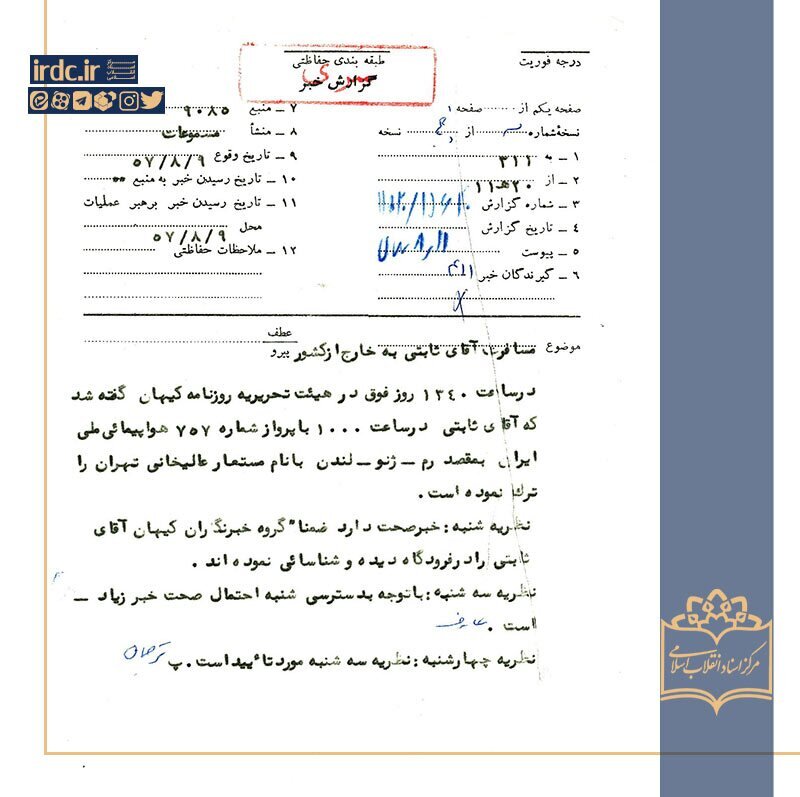 irdc.ir
درجه فوریت
طبقه بندی حفاظتی
سری
گزارش خبر
صفحه یکم از صفحه ۱
نسخهٔ شماره از نسخه
۱ ـ به ۳۱۱
۲ ـ از ۲۰هـ۱۱
۳ ـ شماره گزارش
۴ ـ تاریخ گزارش
۵ ـ پیوست
۶ ـ گیرندگان خبر
۷ ـ منبع ۹۰۸۵
۸ ـ منشأ مسموعات
۹ ـ تاریخ وقوع ۵۷/۸/۹
۱۰ ـ تاریخ رسیدن خبر به منبع
۱۱ ـ تاریخ رسیدن خبر برهبر عملیات
محل ۵۷/۸/۹
۱۲ ـ ملاحظات حفاظتی
عطف
پیرو
موضوع مسافرت آقای ثابتی به خارج ازکشور
درساعت ۱۳۴۰ روز فوق در هیئت تحریریه روزنامه کیهان گفته شد
که آقای ثابتی درساعت ۱۰۰۰ با پرواز شماره ۷۵۷ هواپیمائی ملی
ایران بمقصد رم ـ ژنو ـ لندن بانام مستعار عالیخانی تهران را
ترك نموده است.
نظریه شنبه : خبرصحت دارد ضمنا" گروه خبرنگاران کیهان آقای
ثابتی را در فرودگاه دیده و شناسائی نموده اند .
نظریه سه شنبه : باتوجه بدسترسی شنبه احتمال صحت خبر زیاد ـ
است . عارف
نظریه چهارشنبه : نظریه سه شنبه مورد تائید است. پ
مرکز اسناد انقلاب اسلامی